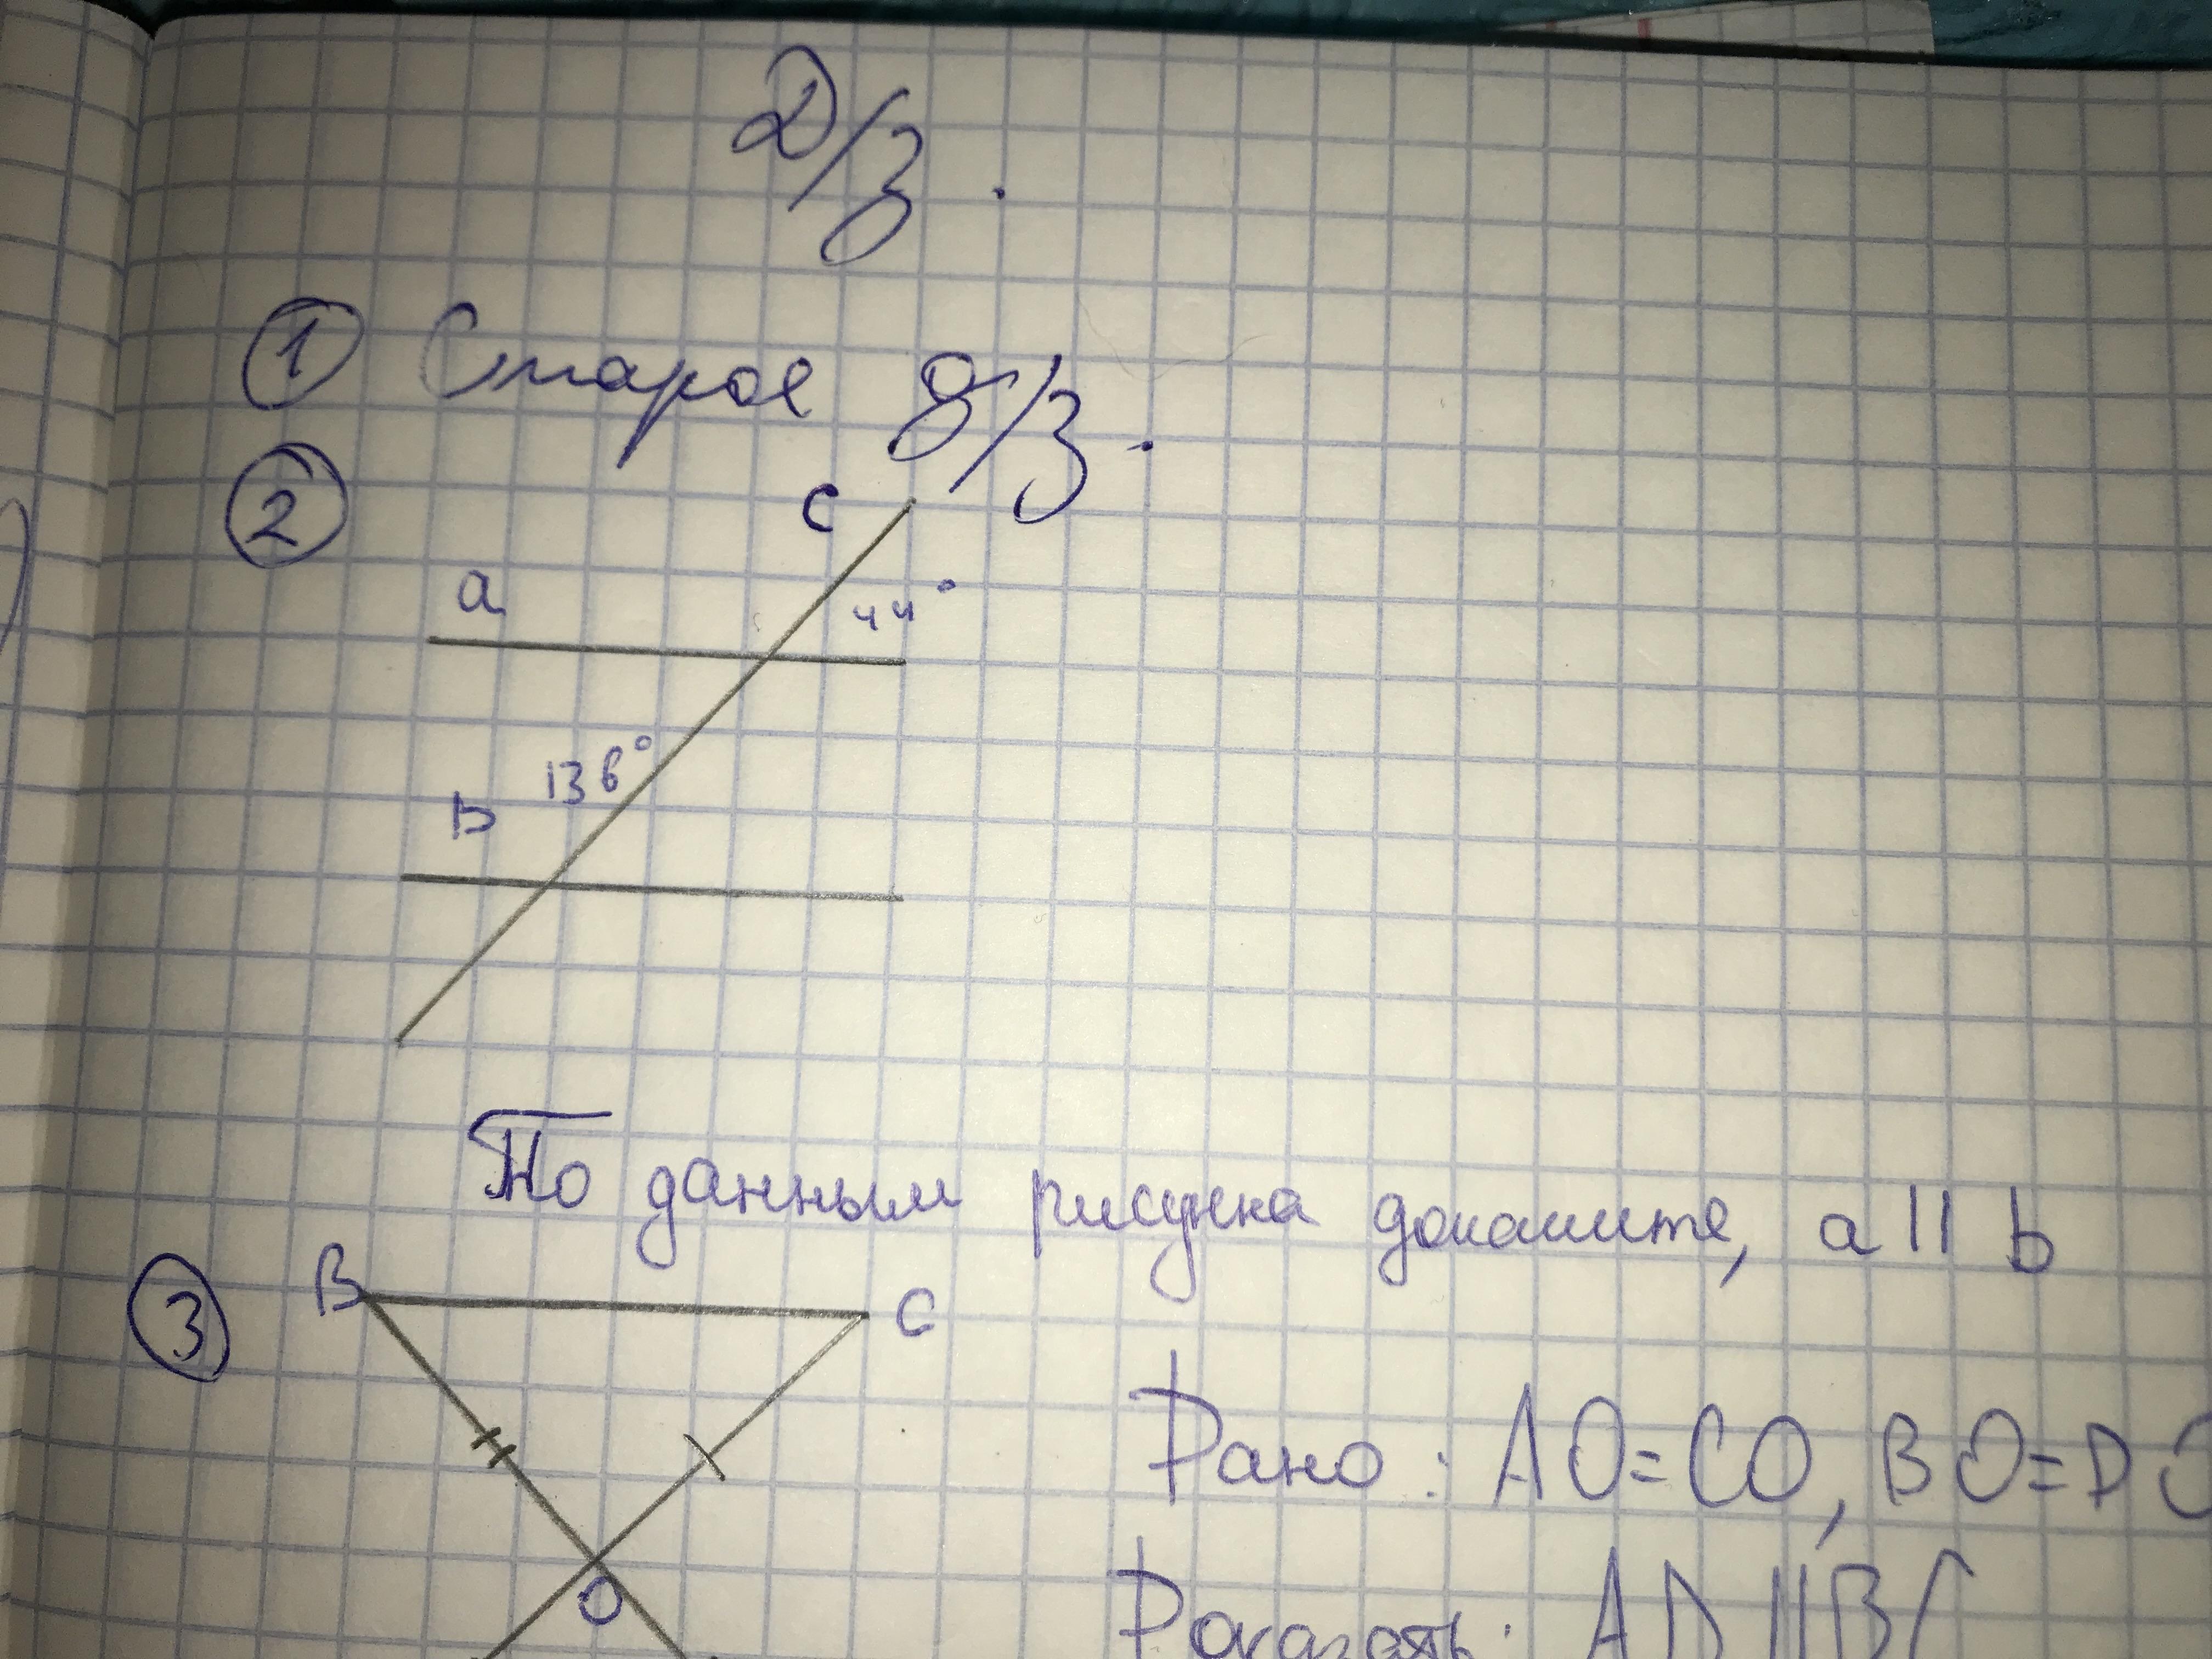 Д/з.
① Старое д/з.
②
c
a
44°
136°
b
По данным рисунка докажите, a || b
③
B
C
Дано: AO=CO, BO=DO
O
Доказать: AD || BC